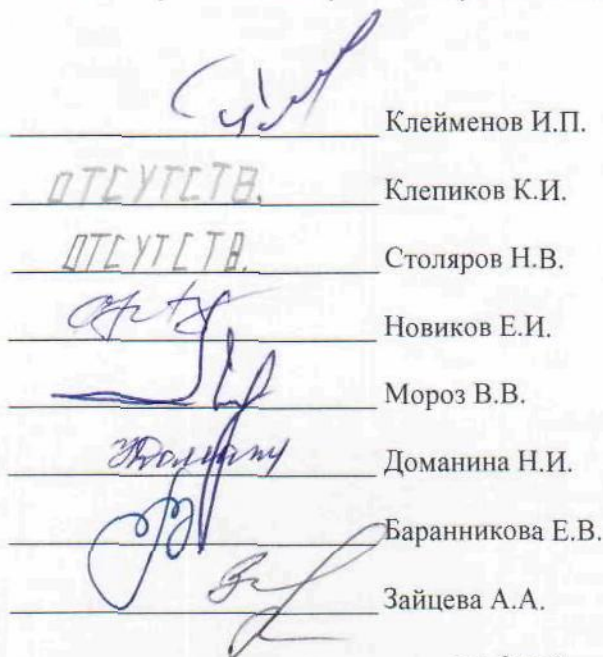 Клейменов И.П.
ОТСУТСТВ. Клепиков К.И.
ОТСУТСТВ. Столяров Н.В.
Новиков Е.И.
Мороз В.В.
Доманина Н.И.
Баранникова Е.В.
Зайцева А.А.